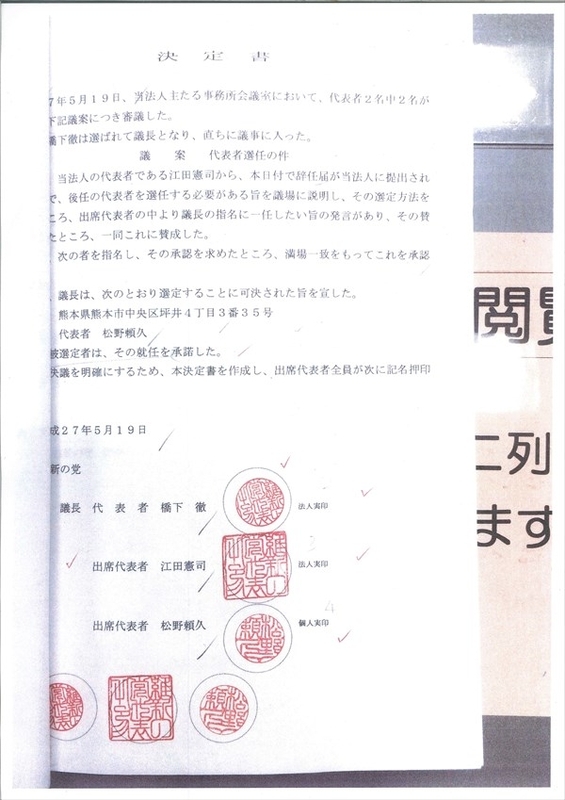 決定書
7年5月19日、当法人主たる事務所会議室において、代表者2名中2名が
下記議案につき審議した。
橋下徹は選ばれて議長となり、直ちに議事に入った。
議　案　代表者選任の件
当法人の代表者である江田憲司から、本日付で辞任届が当法人に提出され
で、後任の代表者を選任する必要がある旨を議場に説明し、その選定方法を
ころ、出席代表者の中より議長の指名に一任したい旨の発言があり、その賛
たところ、一同これに賛成した。
次の者を指名し、その承認を求めたところ、満場一致をもってこれを承認
、議長は、次のとおり選定することに可決された旨を宣した。
熊本県熊本市中央区坪井4丁目3番35号
代表者　松野頼久
被選定者は、その就任を承諾した。
決議を明確にするため、本決定書を作成し、出席代表者全員が次に記名押印
成27年5月19日
新の党
議長　代　表　者　橋下　徹
法人実印
出席代表者　江田憲司
法人実印
出席代表者　松野頼久
個人実印
閲覧
ニ列
ます